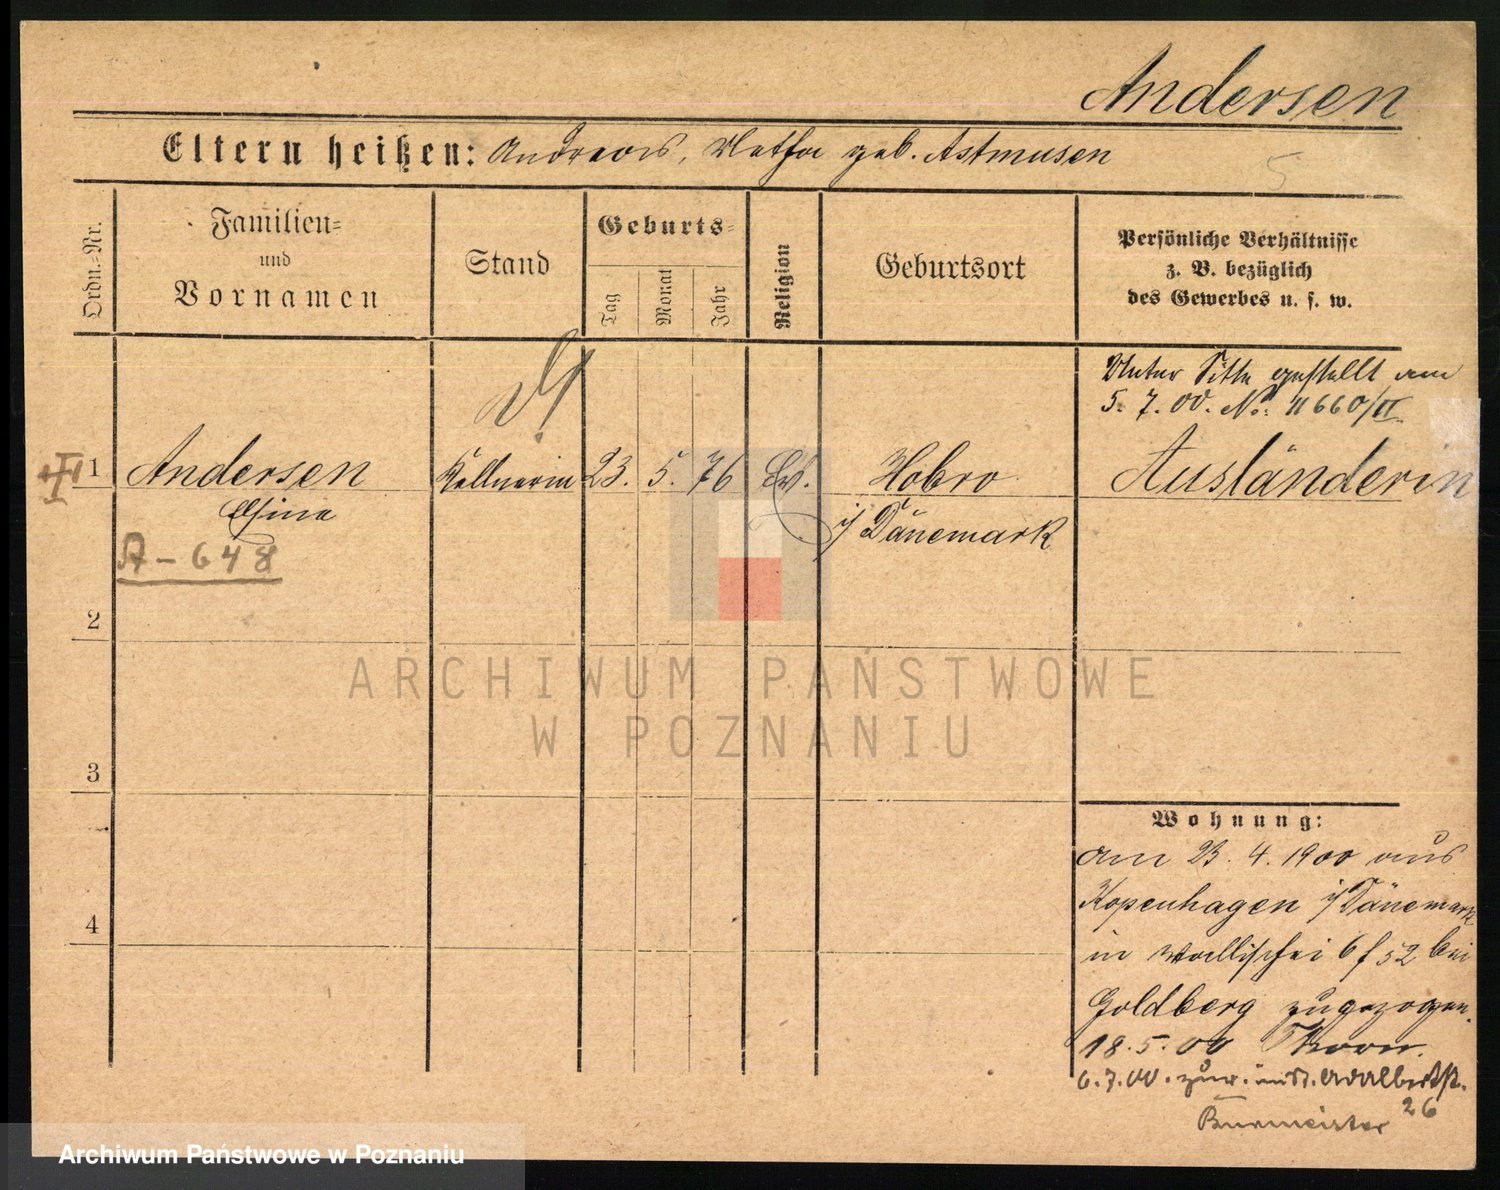 Andersen
Eltern heißen: Andreas, Metha geb. Astmusen
5
Ordn.-Nr.
Familien-
und
Vornamen
Stand
Geburts-
Tag
Monat
Jahr
Religion
Geburtsort
Persönliche Verhältnisse
z. B. bezüglich
des Gewerbes u. s. w.
Unter Sitte gestellt am
5. 7. 00. No: 11660/II
1 Andersen Kellnerin 23. 5. 76 Ev. Hobro Ausländerin
Elsine i/ Dänemark
A-648
2
3
4
Wohnung:
am 23. 4. 1900 aus
Kopenhagen i/Dänemark
in Wallischei 6 f 52 bei
Goldberg zugezogen.
18.5.00 Thorn.
6.7.00. zur. in St. Adalbertstr.
26
Burmeister
ARCHIWUM PAŃSTWOWE
W POZNANIU
Archiwum Państwowe w Poznaniu